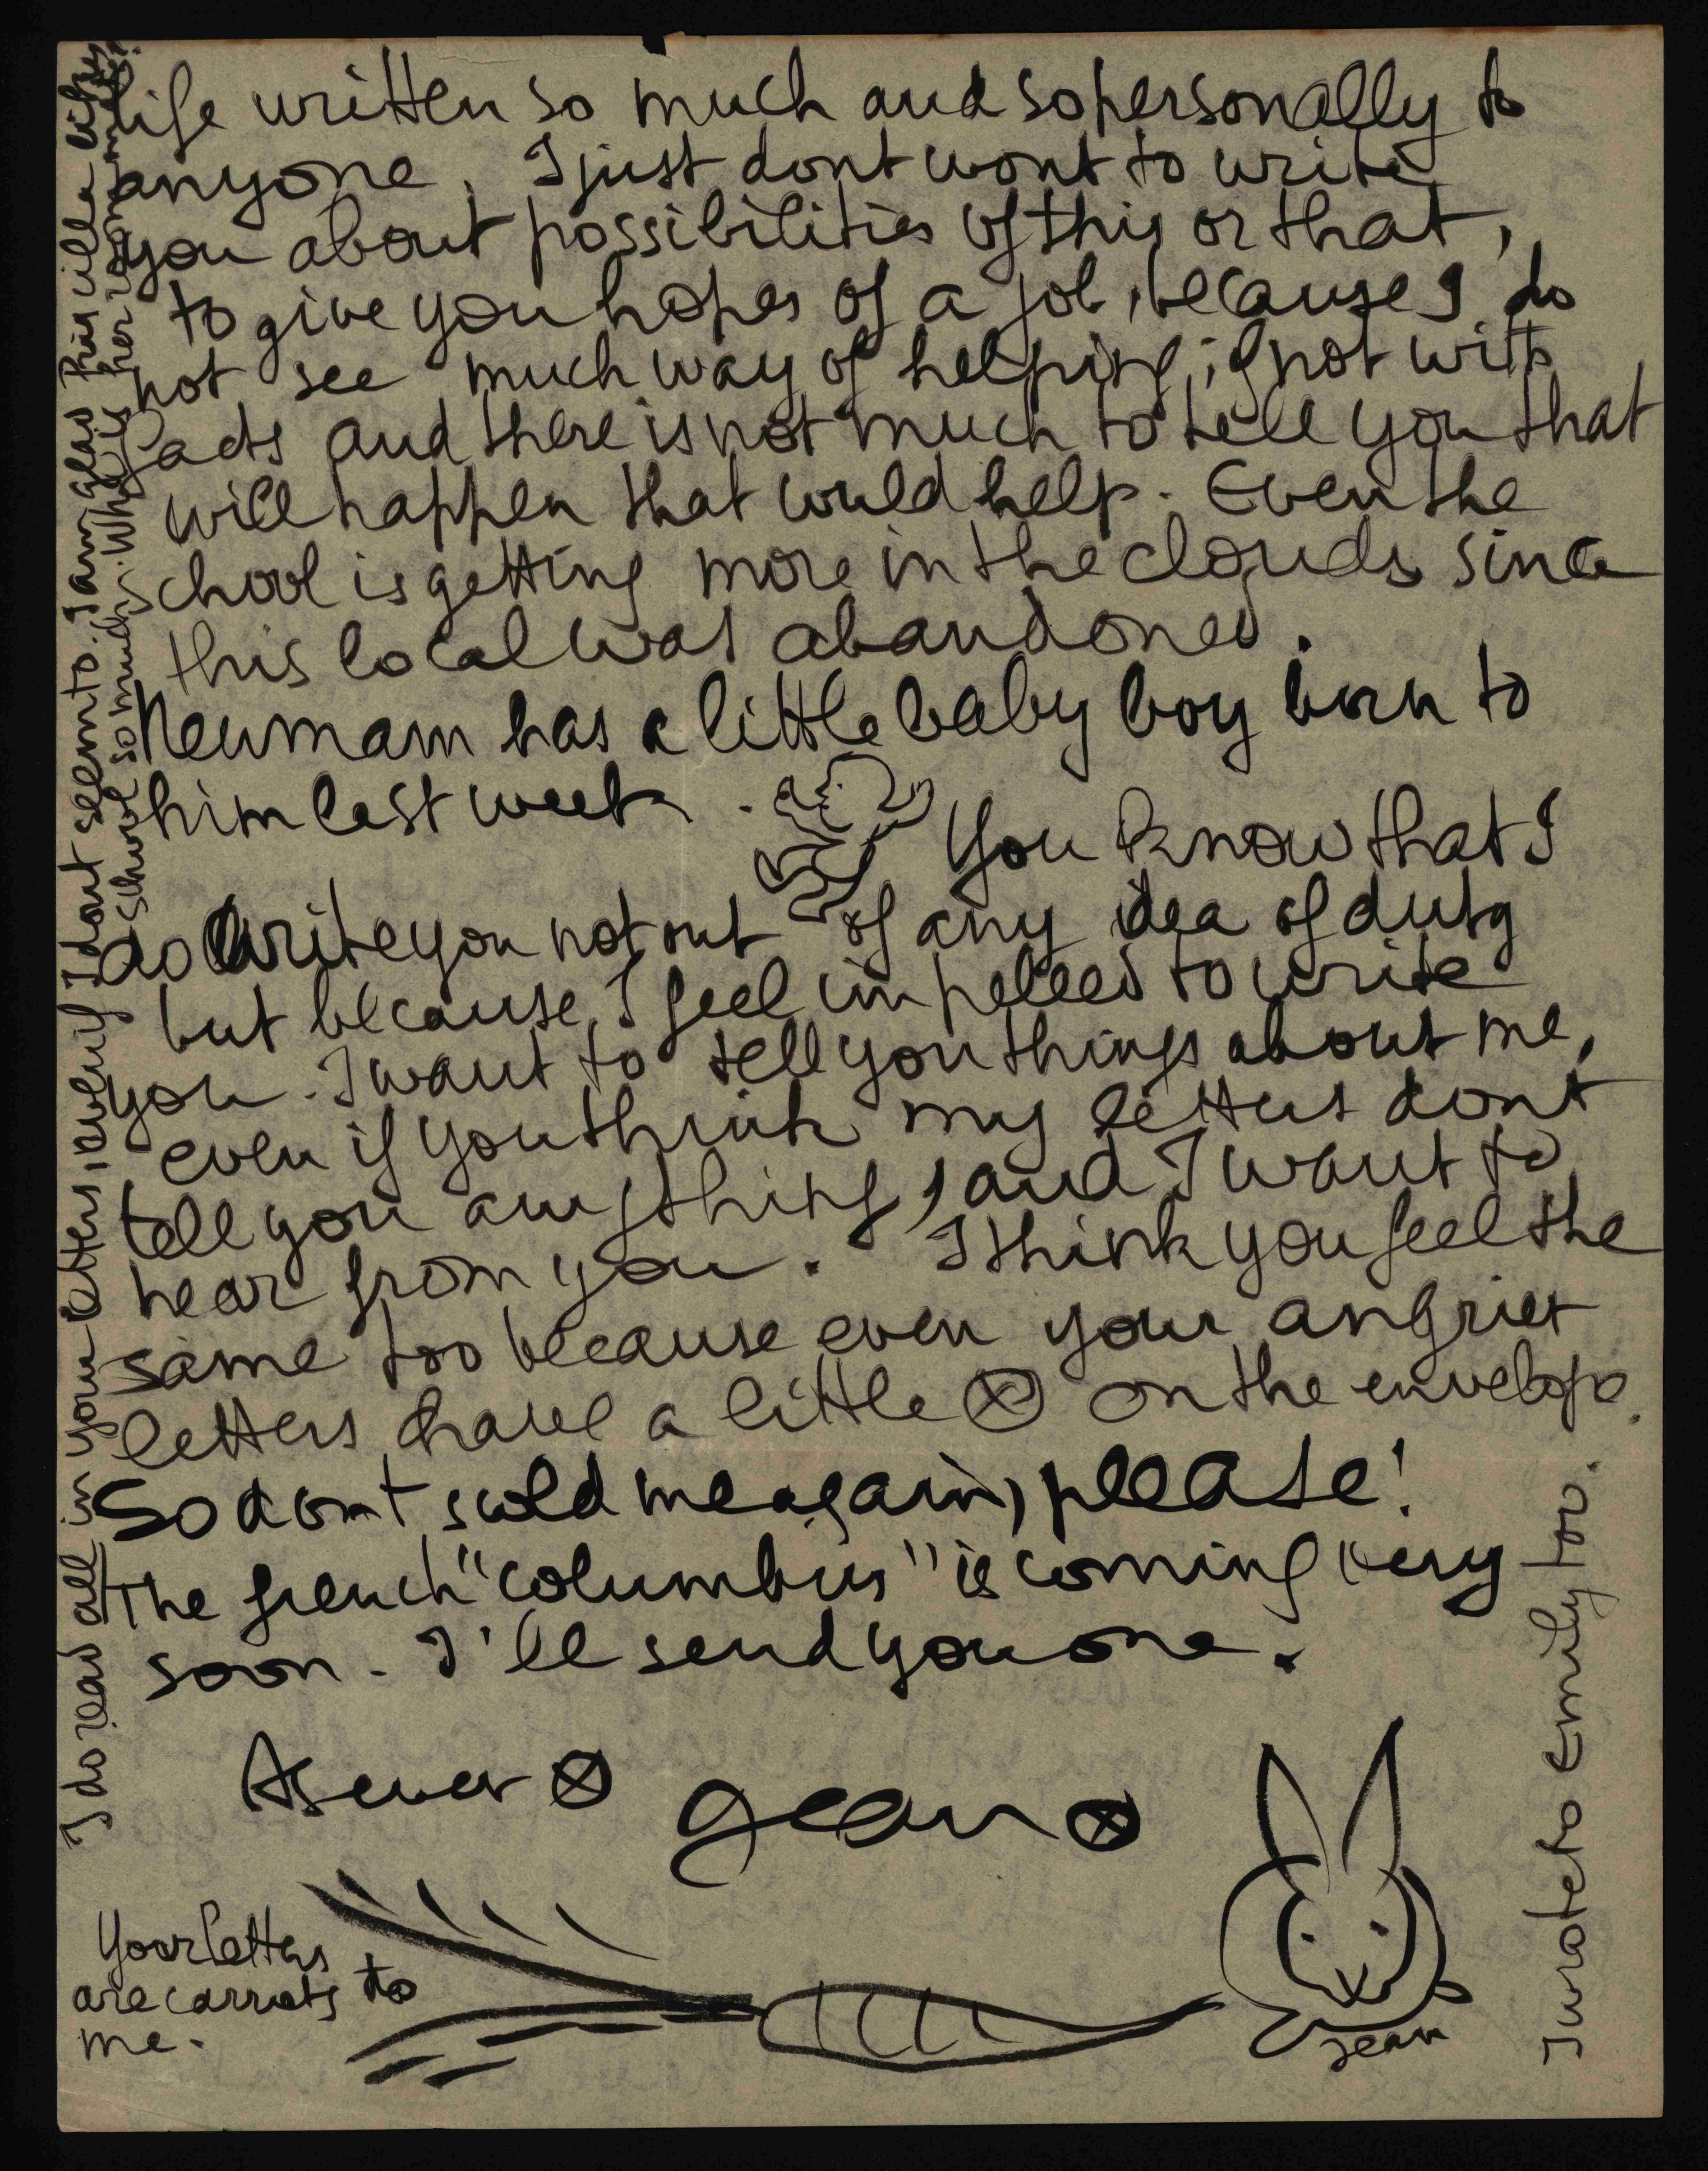 life written so much and so personally to
anyone. I just dont wont to write
you about possibilities of this or that,
to give you hopes of a job, because I do
not see much way of helping, if not with
facts and there is not much to tell you that
will happen that could help. Even the
school is getting more in the clouds since
this local was abandoned.
Neumann has a little baby boy born to
him last week.
You know that I
do write you not out of any idea of duty
but because I feel impelled to write
you. I want to tell you things about me,
even if you think my letters dont
tell you anything, and I want to
hear from you. I think you feel the
same too because even your angriest
letters have a little ⊗ on the envelope.
So dont scold me again, please!
The french "columbus" is coming very
soon. I'll send you one.
As ever ⊗ Jean ⊗
Your letters
are carrots to
me.
Jean
I wrote to Emily too.
I do read all in your letters, even if I dont seem to. I am glad
school so much. Who is her